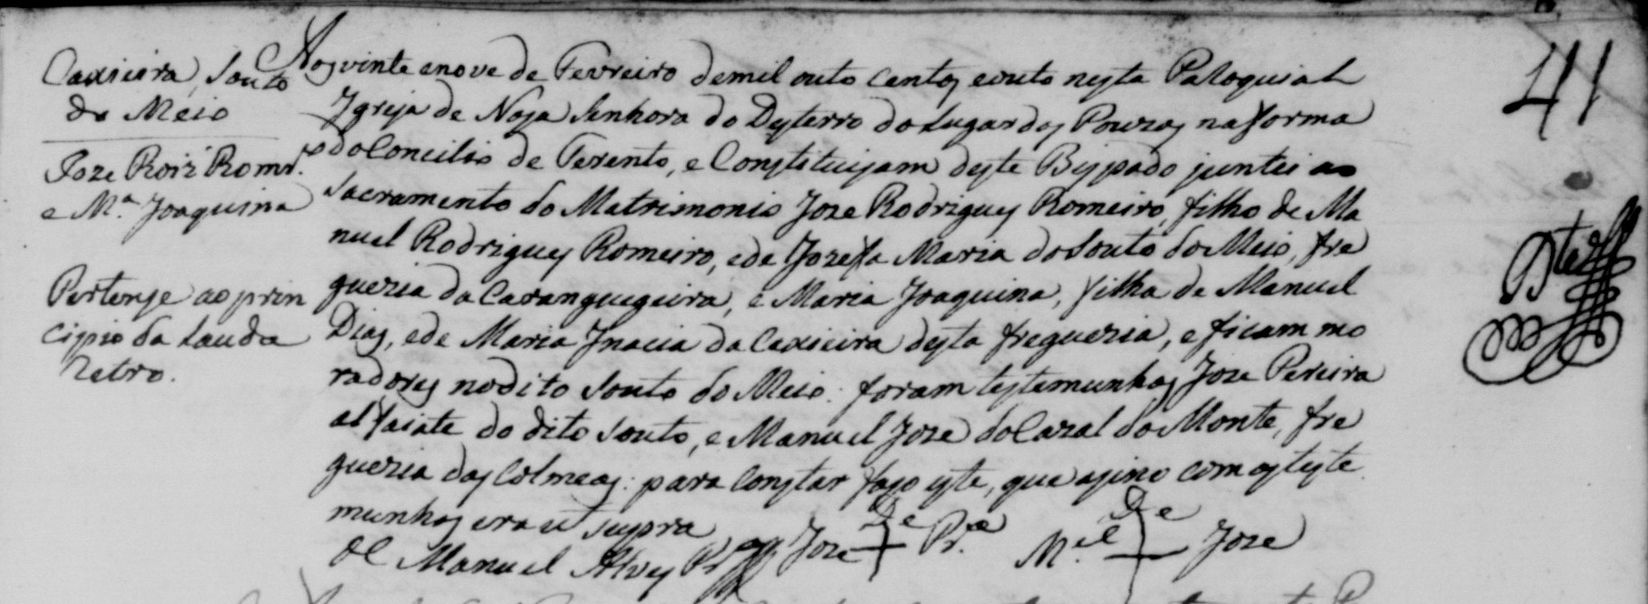 41
Caxieira, Souto
do Meio
Joze Roiz' Romr.º
e M.ª Joaquina
Pertense ao prin
cipio da Lauda
retro.
Aos vinte e nove de Fevreiro de mil outo centos e outo nesta Paroquial
Igreja de Nosa Senhora do Desterro do Lugar dos Pouzos na forma
do Concilio de Terento, e Constituisam deste Bispado juntei ao
Sacramento do Matrimonio Joze Rodrigues Romeiro, filho de Ma
nuel Rodrigues Romeiro, e de Jozefa Maria do Souto do Meio, fre
guezia da Caranguegeira, e Maria Joaquina, filha de Manuel
Dias, e de Maria Inacia da Caxieira desta freguezia, e ficam mo
radores no dito Souto do Meio: foram testemunhas Joze Pereira
alfaiate do dito Souto, e Manuel Joze do Cazal do Monte, fre
guezia das Colmeas: para Constar faso este, que asino com as teste
munhas era ut supra
Manuel Alves Joze + de Pr.ª M.el + de Joze